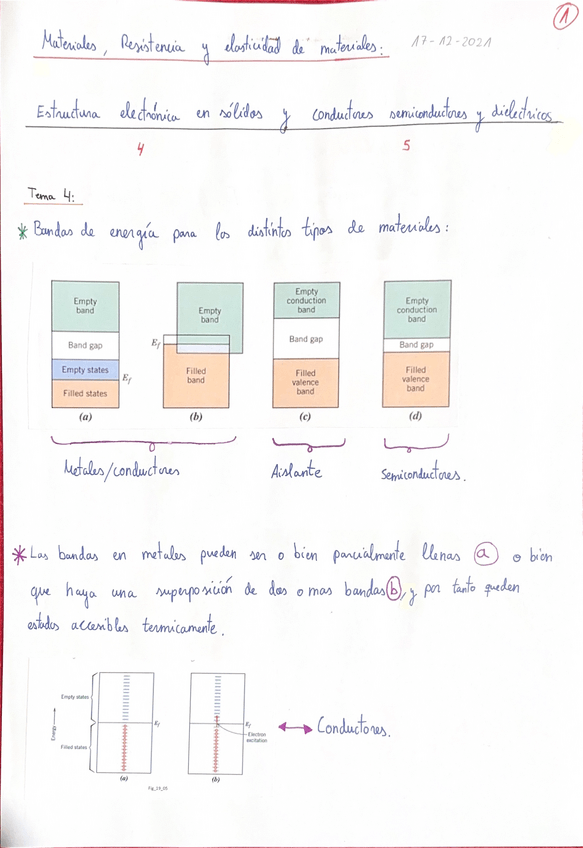 1
Materiales, Resistencia y elasticidad de materiales: 17-12-2021
Estructura electrónica en sólidos y conductores semiconductores y dielectricos
4 5
Tema 4:
* Bandas de energía para los distintos tipos de materiales:
Empty band
Band gap
Empty states
Ef
Filled states
(a)
Empty band
Ef
Filled band
(b)
Empty conduction band
Band gap
Filled valence band
(c)
Empty conduction band
Band gap
Filled valence band
(d)
Metales/conductores Aislante Semiconductores.
* Las bandas en metales pueden ser o bien parcialmente llenas a o bien
que haya una superposición de dos o mas bandas b, y por tanto queden
estados accesibles termicamente.
Energy
Empty states
Filled states
Ef
(a)
Ef
Electron excitation
(b)
Conductores.